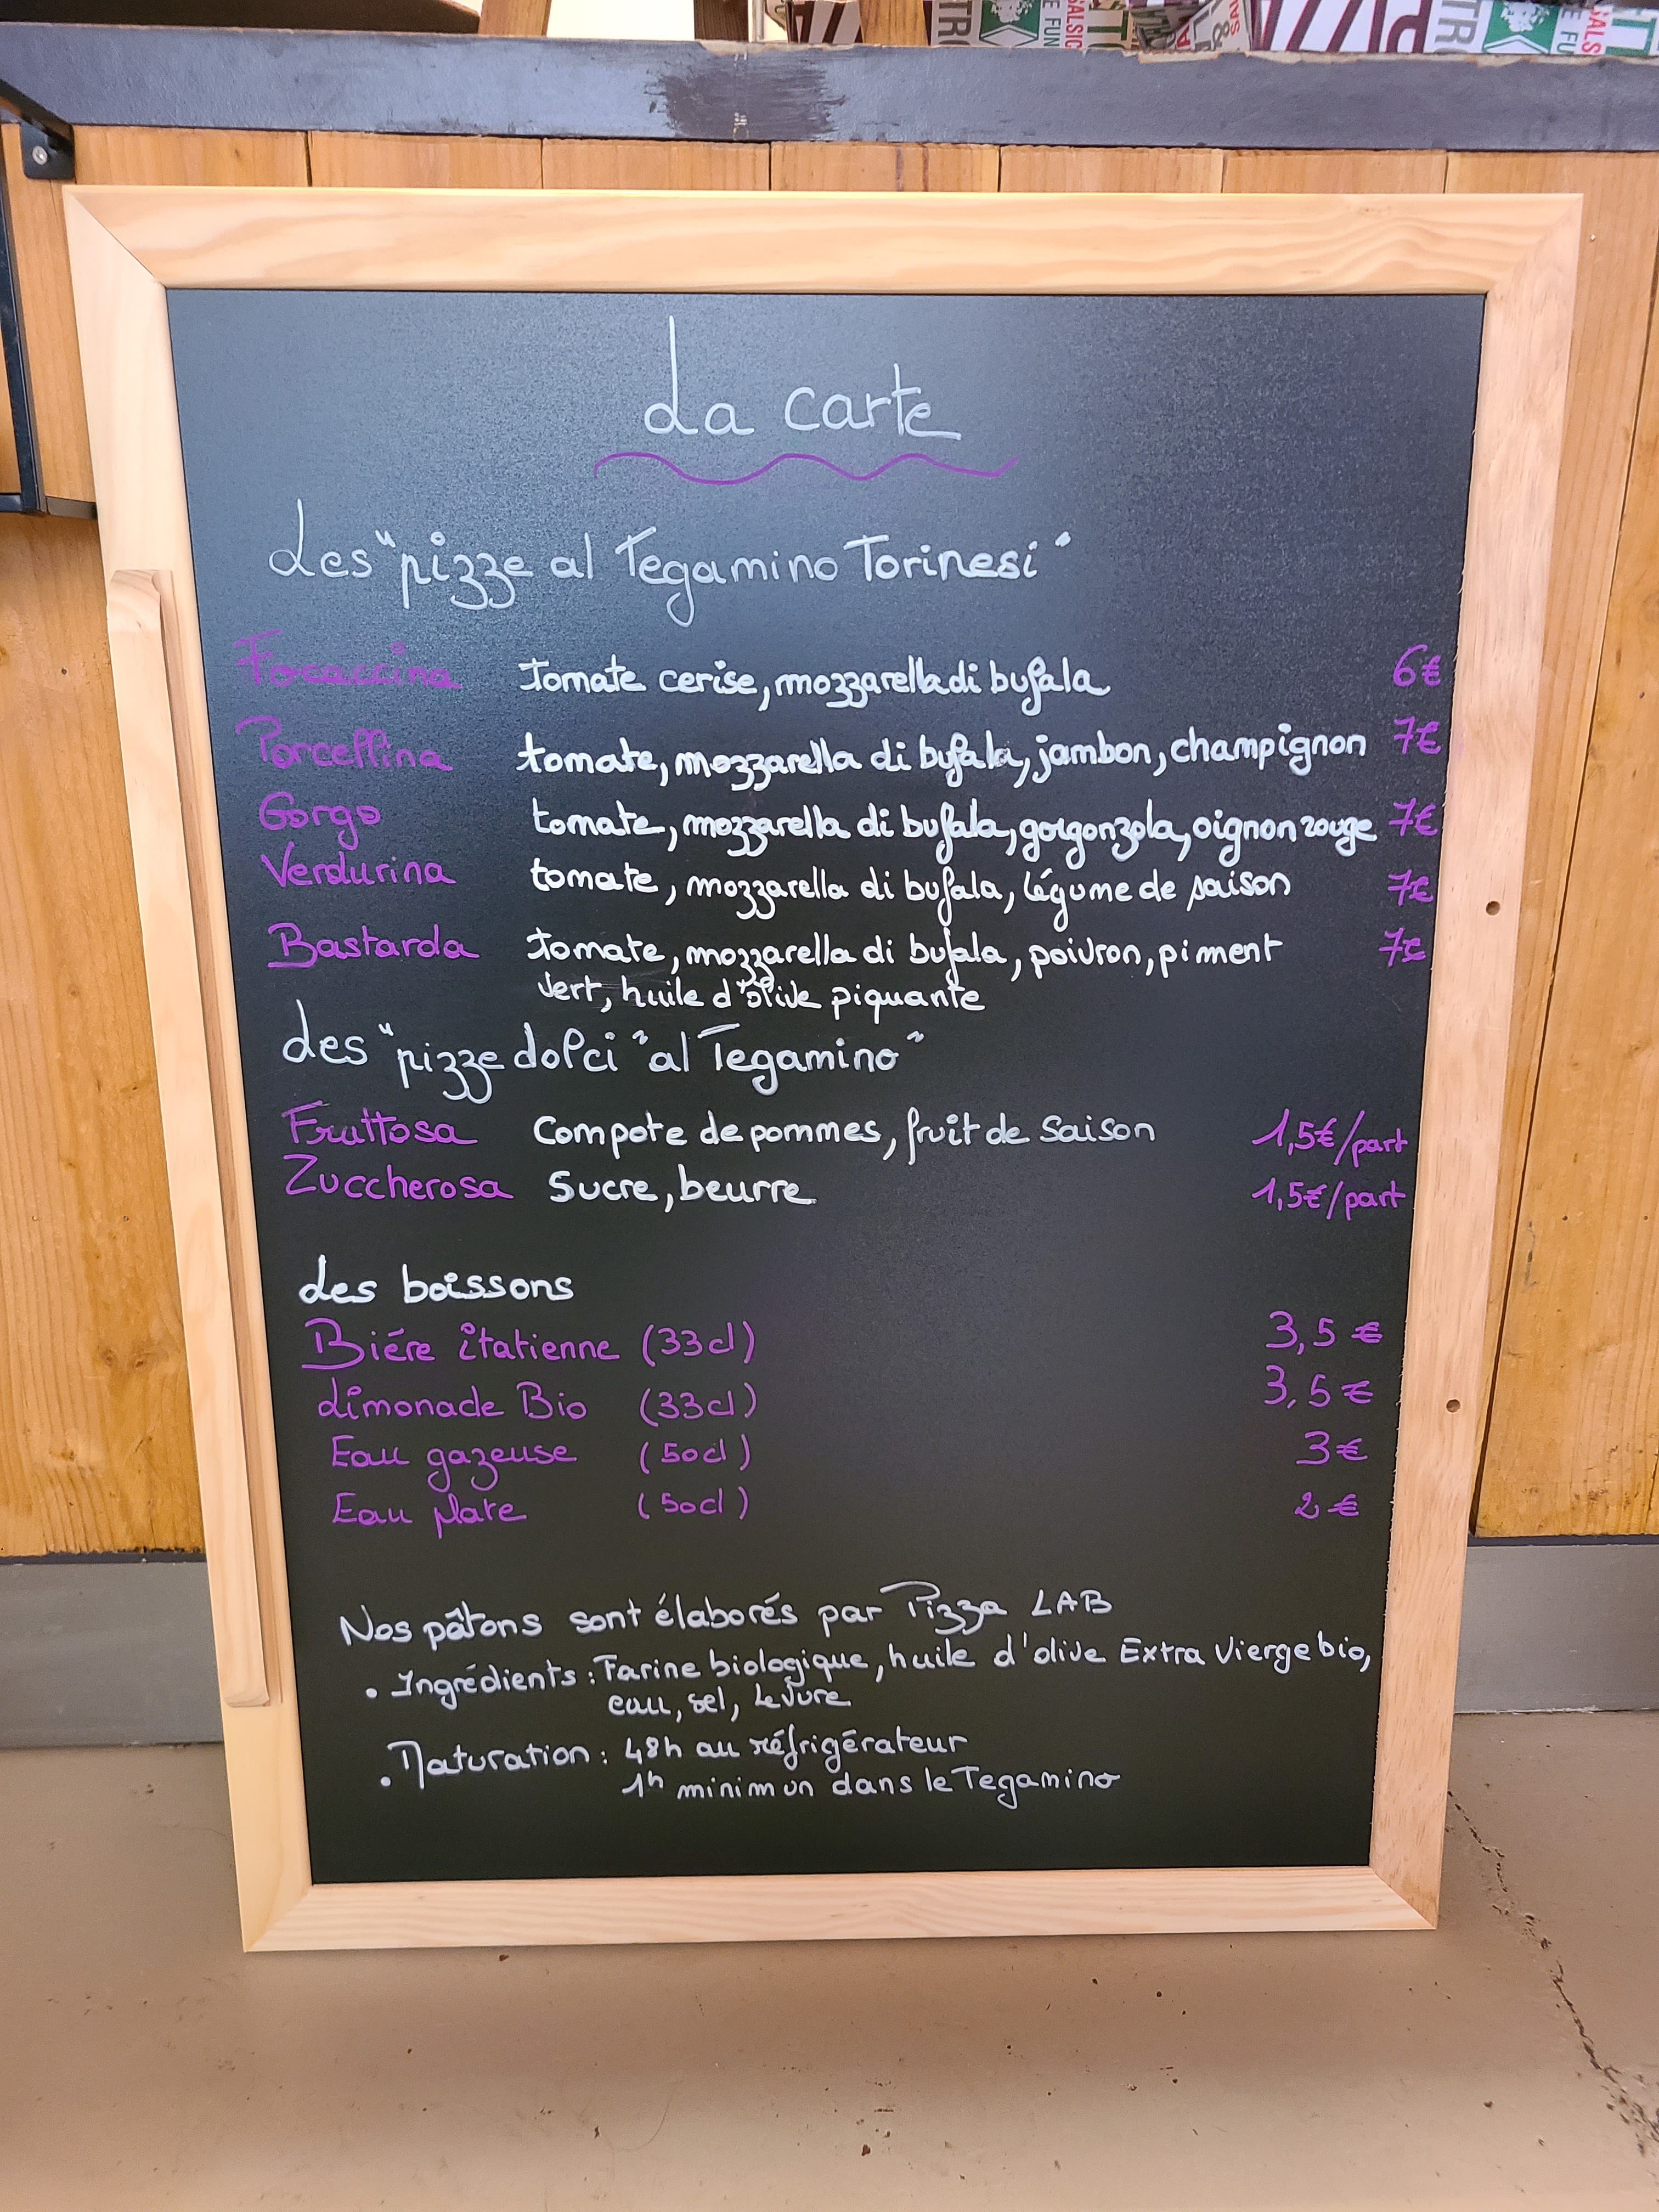 TRO
E FUN
SALSIC
TRO
E FU
SALS
La carte
Les "pizze al Tegamino Torinesi"
Focaccina tomate cerise, mozzarella di bufala 6€
Porcellina tomate, mozzarella di bufala, jambon, champignon 7€
Gorgo tomate, mozzarella di bufala, gorgonzola, oignon rouge 7€
Verdurina tomate, mozzarella di bufala, légume de saison 7€
Bastarda tomate, mozzarella di bufala, poivron, piment 7€
vert, huile d'olive piquante
Les "pizze dolci "al Tegamino"
Fruttosa Compote de pommes, fruit de saison 1,5€/part
Zuccherosa Sucre, beurre 1,5€/part
Les boissons
Biére italienne (33cl) 3,5€
Limonade Bio (33cl) 3,5€
Eau gazeuse (50cl) 3€
Eau plate (50cl) 2€
Nos pâtons sont élaborés par Pizza LAB
• Ingrédients : Farine biologique, huile d'olive Extra Vierge bio,
eau, sel, levure
• Maturation : 48h au réfrigérateur
1h minimun dans le Tegamino